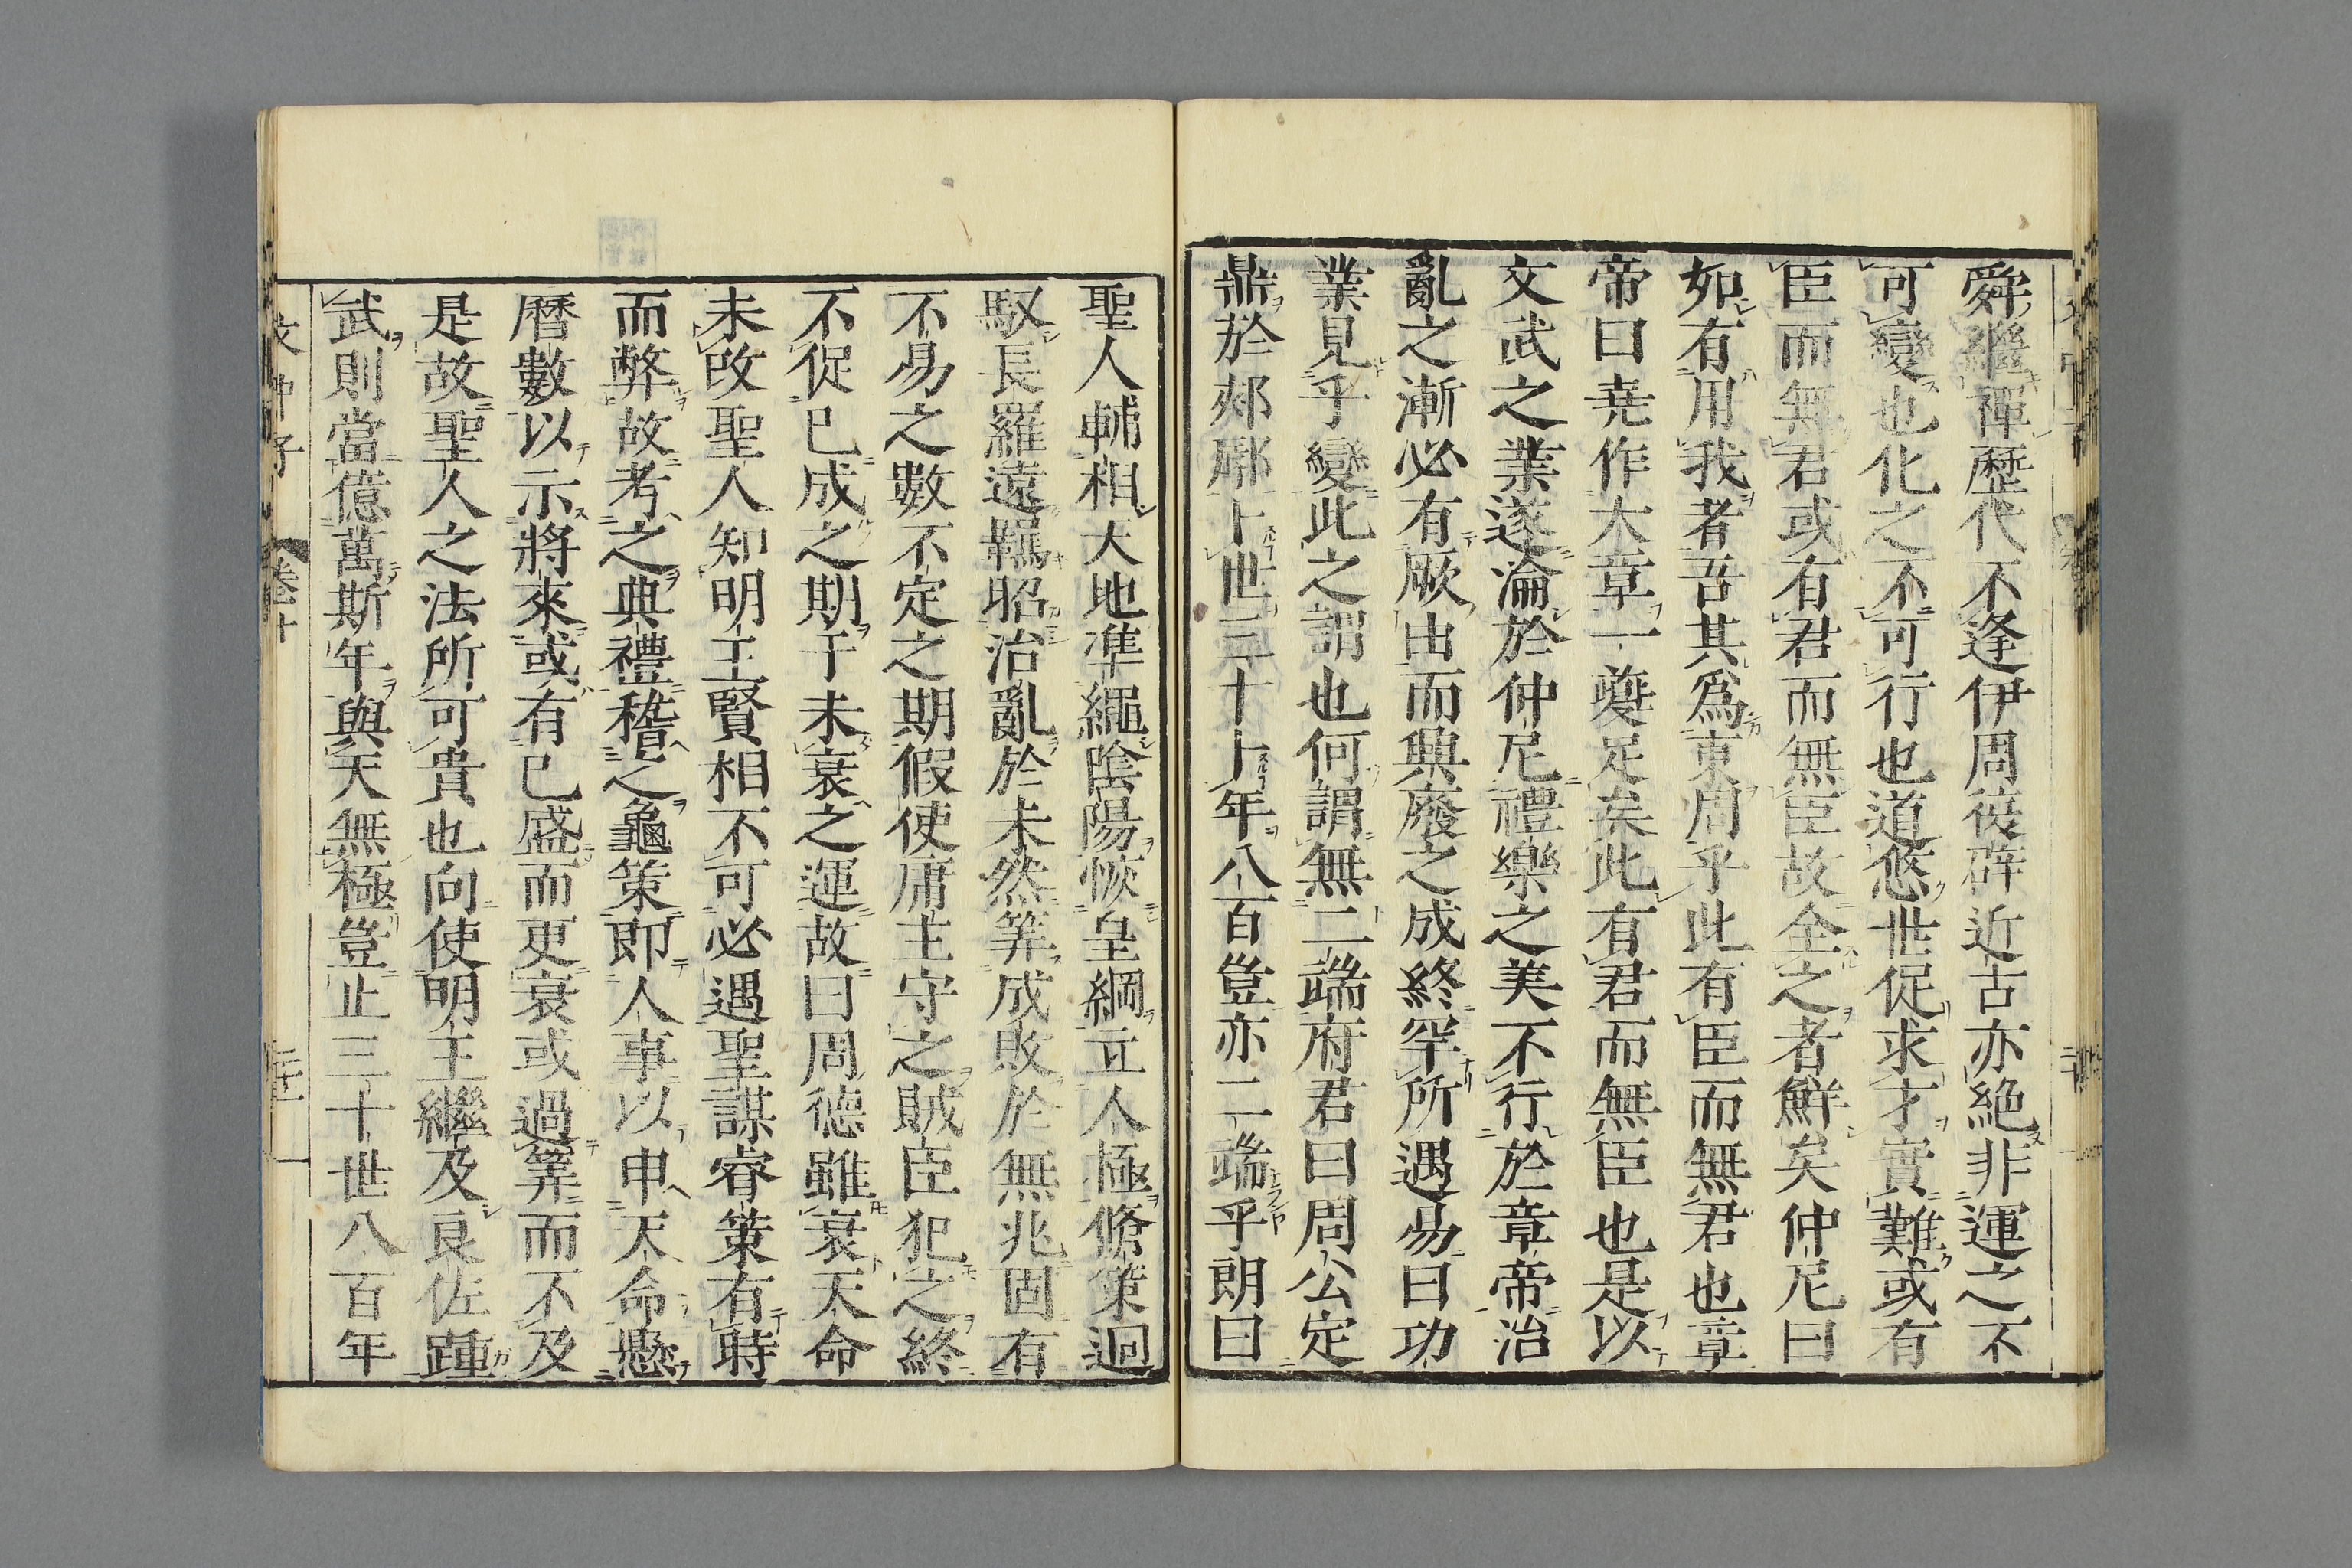 舜繼禪歷代不逢伊周復辟近古亦絶非運之不
可變也化之不可行也道悠世促求才實難或有
臣而無君或有君而無臣故全之者鮮矣仲尼曰
如有用我者吾其爲東周乎此有臣而無君也章
帝曰堯作大章一夔足矣此有君而無臣也是以
文武之業遂淪於仲尼禮樂之美不行於章帝治
亂之漸必有厥由而興廢之成終罕所遇易曰功
業見乎變此之謂也何謂無二端府君曰周公定
鼎於郟鄏卜世三十卜年八百豈亦二端乎朗曰
聖人輔相天地準繩陰陽恢皇綱立人極脩策迥
馭長羅遠羈昭治亂於未然筭成敗於無兆固有
不易之數不定之期假使庸主守之賊臣犯之終
不促已成之期于未衰之運故曰周德雖衰天命
未改聖人知明王賢相不可必遇聖謀睿策有時
而弊故考之典禮稽之龜策即人事以申天命懸
曆數以示將來或有已盛而更衰或過筭而不及
是故聖人之法所可貴也向使明王繼及良佐踵
武則當億萬斯年與天無極豈止三十世八百年
文中子
卷十